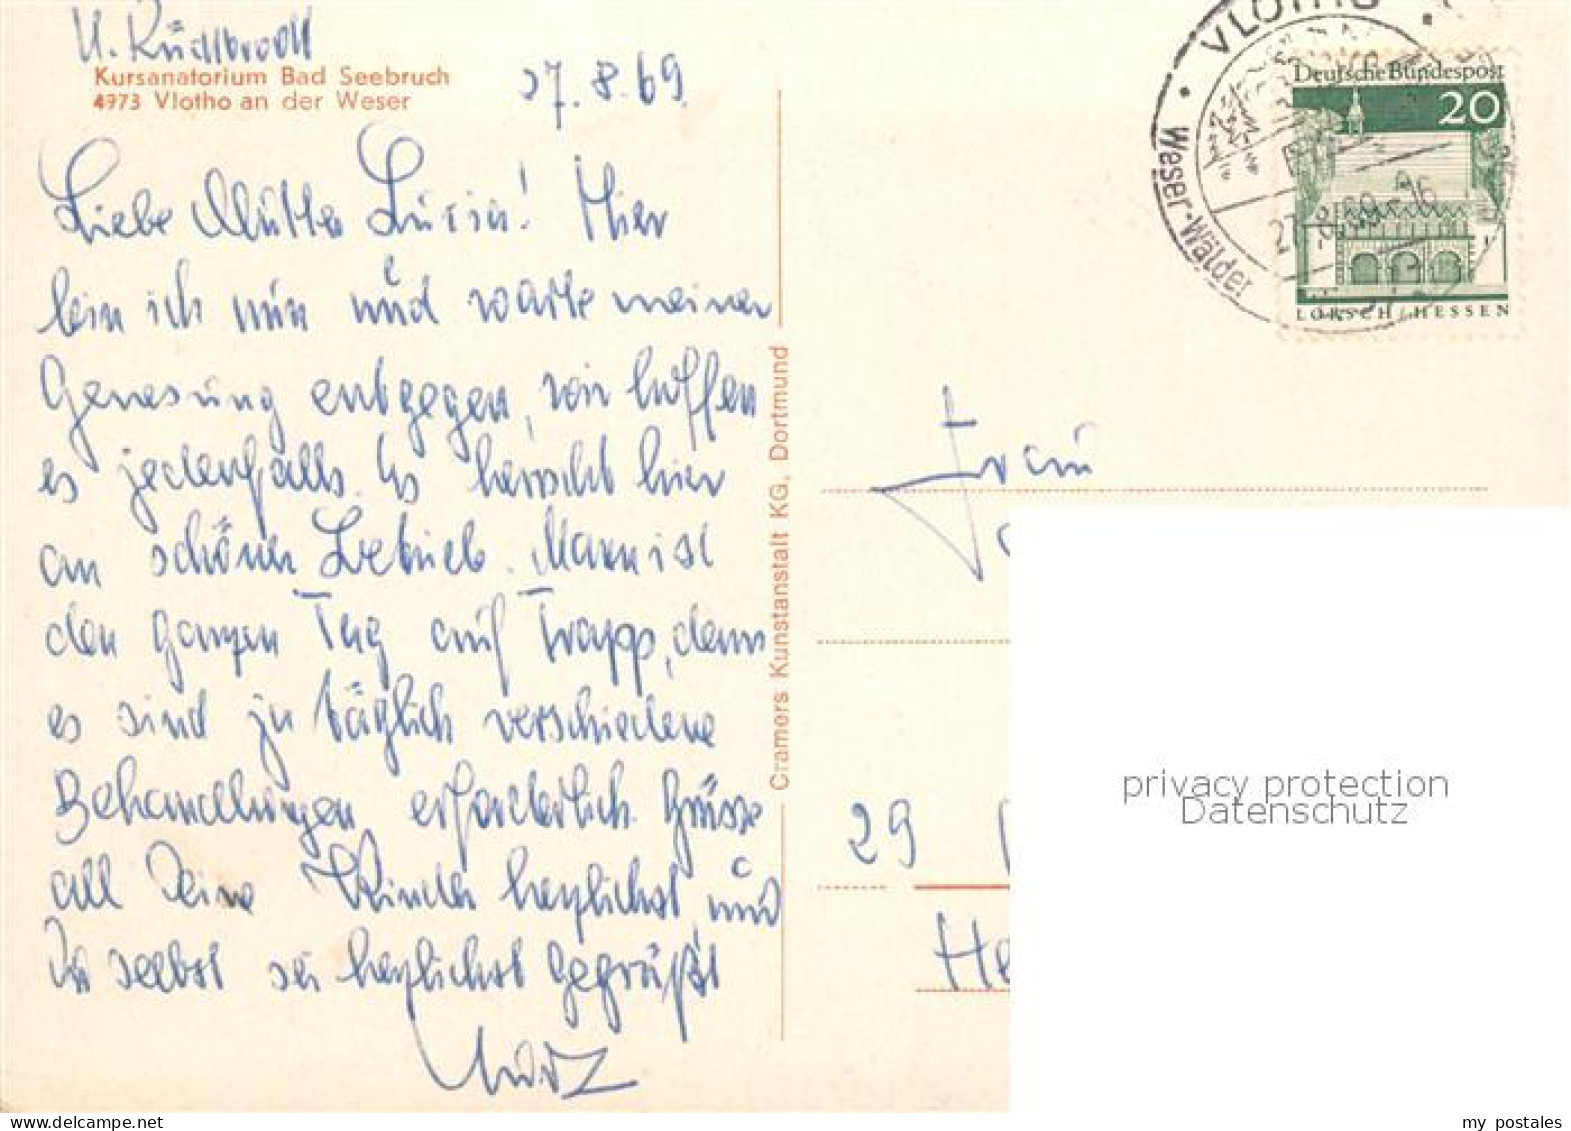 U. Rüdlbrodt
Kursanatorium Bad Seebruch
4973 Vlotho an der Weser
27.8.69.
Liebe Mutter Lucia! Hier
bin ich nun und warte meiner
Genesung entgegen, wir hoffen
es jedenfalls. Es herrscht hier
ein schöner Betrieb. Man ist
den ganzen Tag auf Trapp, denn
es sind ja täglich verschiedene
Behandlungen erforderlich. Grüsse
all Deine Kinder herzlichst, und
Du selbst sei herzlichst gegrüßt
Cramers Kunstanstalt KG, Dortmund
VLOTHO
Weser-Wälder
27.8.69-16
Deutsche Bundespost
20
LORSCH/HESSEN
Frau
29
He
privacy protection
Datenschutz
www.delcampe.net
my_postales